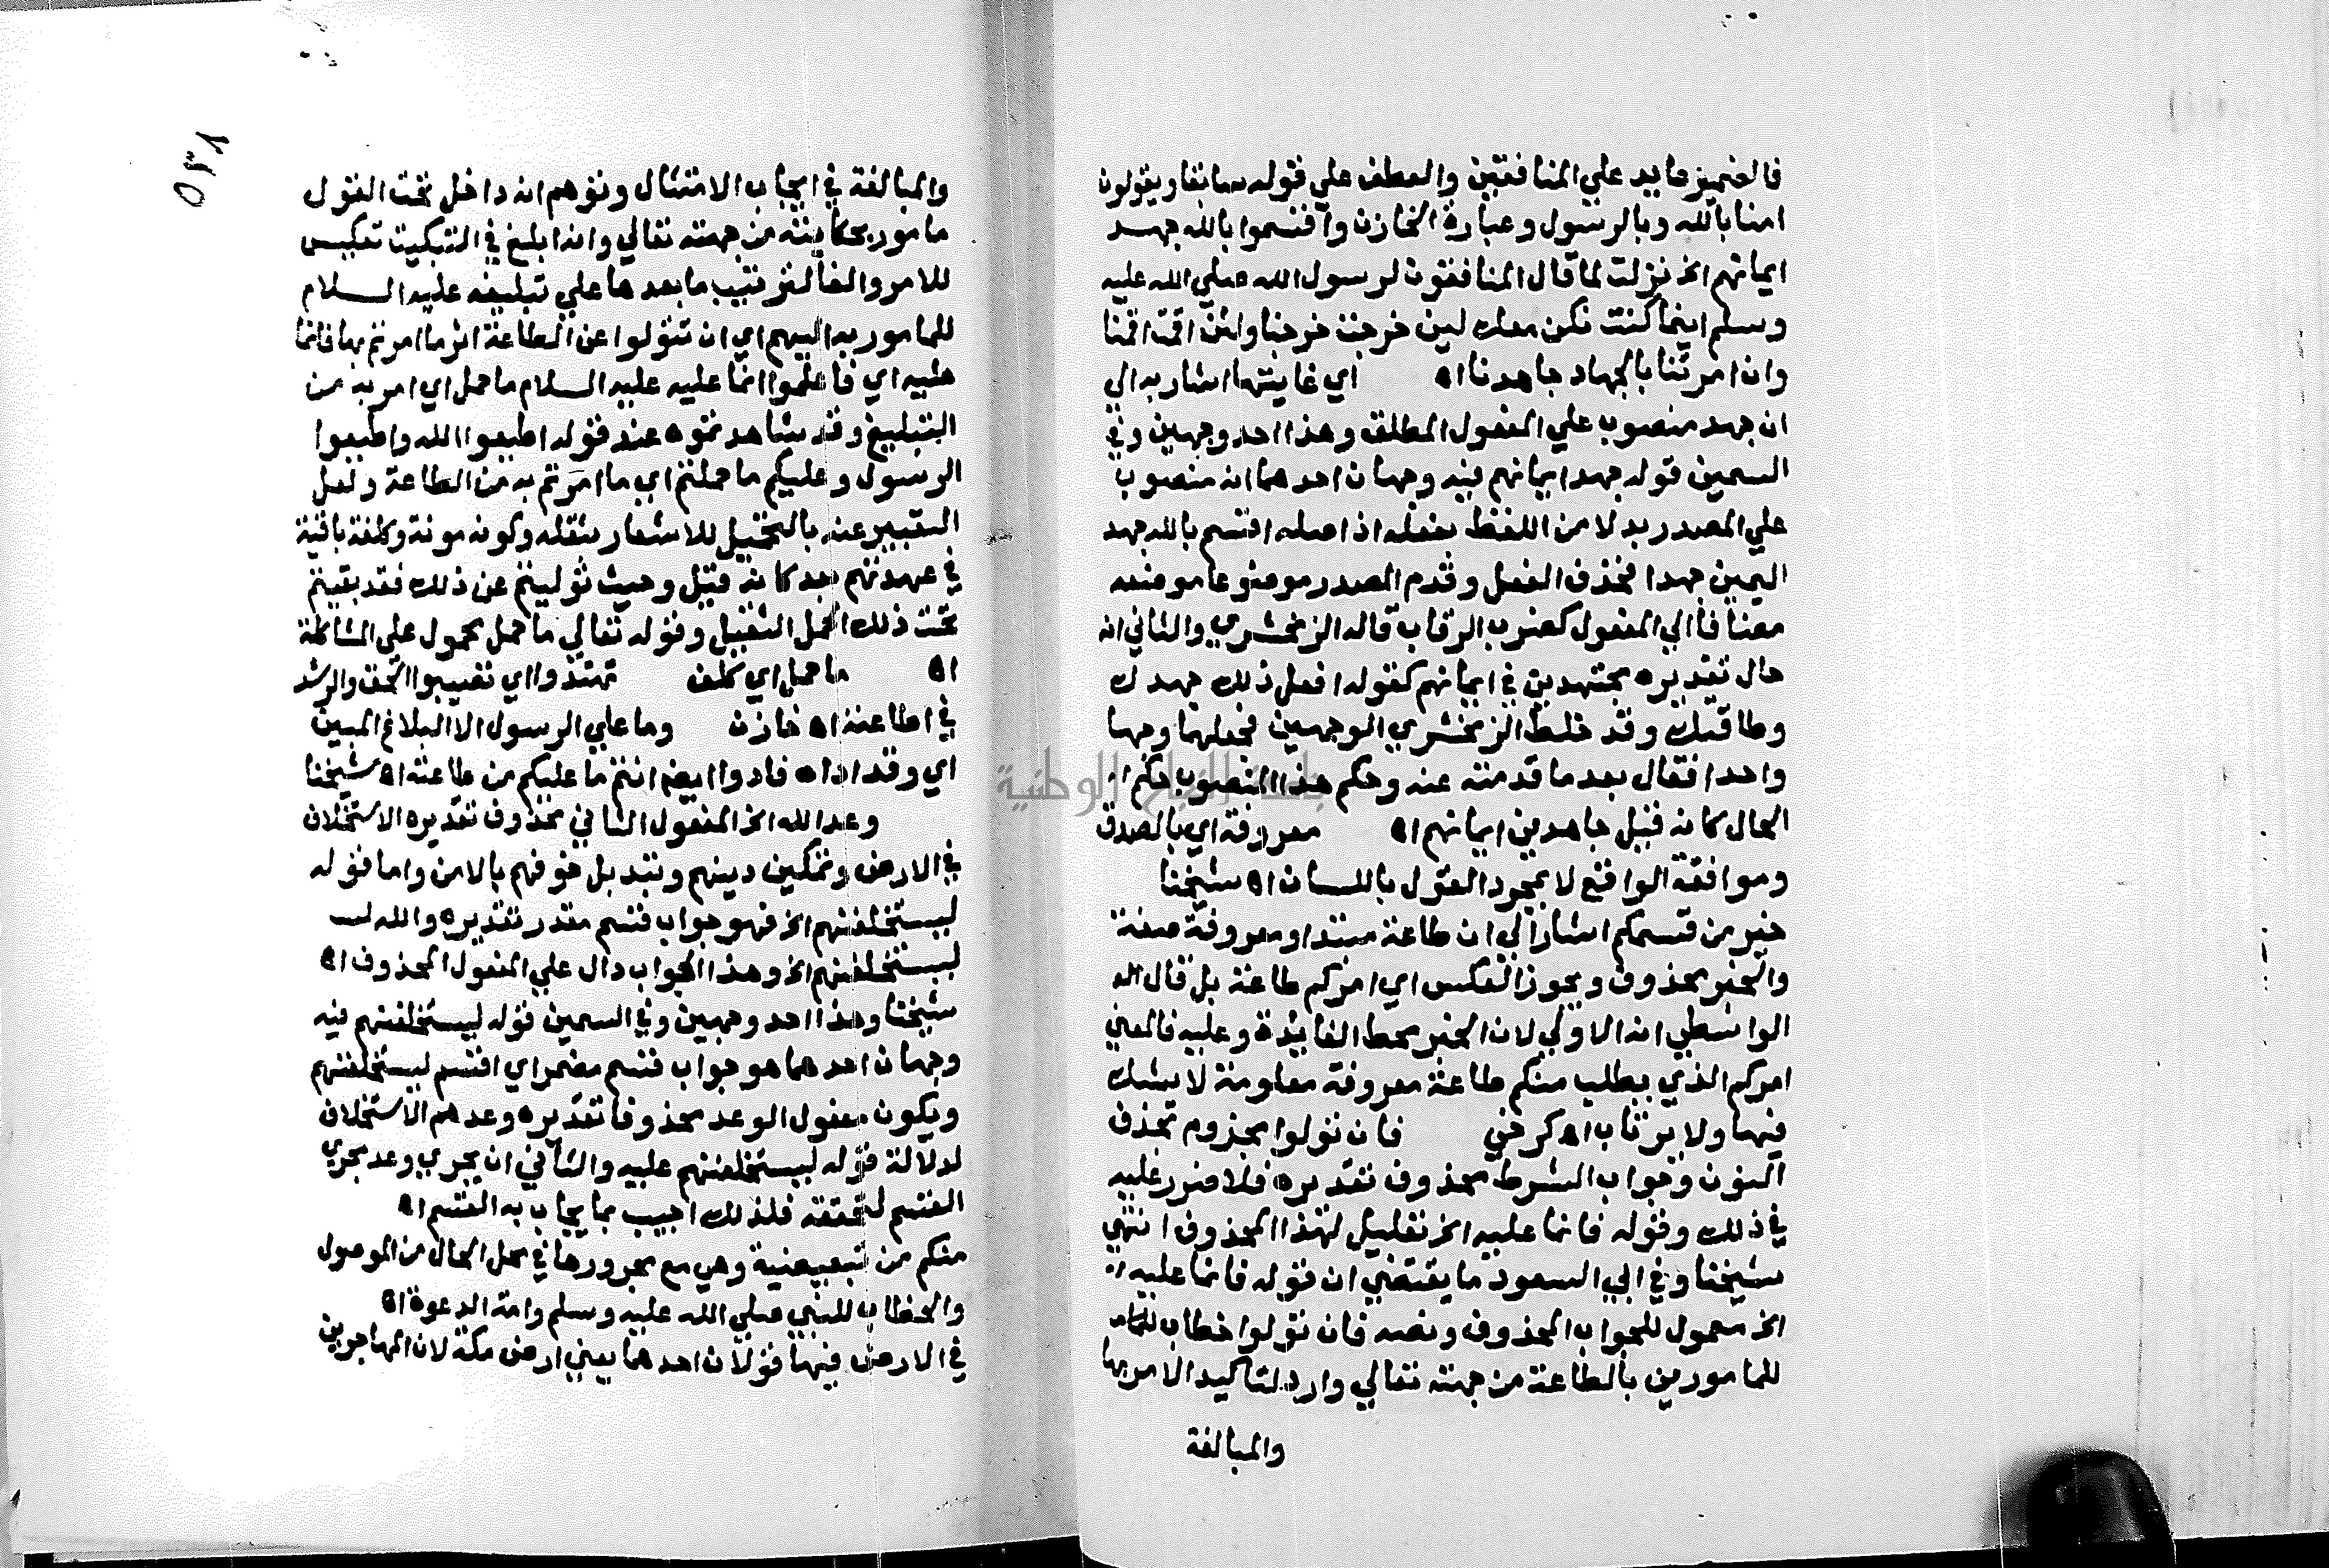 فالضمير عايد علي المنافقين والعطف علي قوله سابقا ويقولون
امنا بالله وبالرسول وعبارة الخازن واقسموا بالله جهد
ايمانهم الخ نزلت لما قال المنافقون لرسول الله صلي الله عليه
وسلم اينما كنت نكن معك لين خرجت خرجنا ولئن اقمت اقمنا
وان امرتنا بالجهاد جاهدنا اه اي غايتها اشار به الي
ان جهد منصوب علي المفعول المطلق وهذا احد وجهين وفي
السمين قوله جهد ايمانهم فيه وجهان احدهما انه منصوب
علي المصدر بدلا من اللفظ بفعله اذ اصله اقسم بالله جهد
اليمين جهدا فحذف الفعل وقدم المصدر موضوعا موضعه
مضافا الي المفعول كضرب الرقاب قاله الزمخشري والثاني انه
حال تقديره مجتهدين في ايمانهم كقوله افعل ذلك جهدك
وطاقتك وقد خلط الزمخشري الوجهين فجعلهما وجها
واحدا فقال بعد ما قدمته عنه وحكم هذا المنصوب حكم
الحال كانه قيل جاهدين ايمانهم اه معروفة اي بالصدق
وموافقة الواقع لا بمجرد القول باللسان اه شيخنا
خير من قسمكم اشار الي ان طاعة مبتدا ومعروفة صفة
والخبر محذوف ويجوز العكس اي امركم طاعة بل قال
الواسطي انه الاولي لان الخبر محط الفايدة وعليه فالمعني
امركم الذي يطلب منكم طاعة معروفة معلومة لا يشك
فيها ولا يرتاب اه كرخي فان تولوا مجزوم بحذف
النون وجواب الشرط محذوف تقديره فلا ضرر عليه
في ذلك وقوله فانما عليه الخ تعليل لهذا المحذوف انتهي
شيخنا وفي ابي السعود ما يقتضي ان قوله فانما عليه
الخ معمول للجواب المحذوف ونصه فان تولوا خطاب
للمامورين بالطاعة من جهته تعالي وارد لتاكيد الامر بها
والمبالغة
٥٣٨
والمبالغة في ايجاب الامتثال وتوهم انه داخل تحت القول
مامور بحكايته من جهته تعالي وانه ابلغ في التبكيت تعكيس
للامر والفا لترتيب ما بعدها علي تبليغه عليه السلام
للمامور به اليهم اي ان تتولوا عن الطاعة اثر ما امرتم بها فانما
عليه اي فاعلموا انما عليه عليه السلام ما حمل اي امر به من
التبليغ وقد شاهدتموه عند قوله اطيعوا الله واطيعوا
الرسول وعليكم ما حملتم اي ما امرتم به من الطاعة ولعل
التعبير عنه بالتحميل للاشعار بثقله وكونه مونة وكلفة باقية
في عهدتهم بعد كانه قيل وحيث توليتم عن ذلك فقد بقيتم
تحت ذلك الحمل الثقيل وقوله تعالي ما حمل محمول علي المشاكلة
اه ما حمل اي كلف تهتدوا اي تصيبوا الحق والرشد
في اطاعته اه خازن وما علي الرسول الا البلاغ المبين
اي وقد اداه فادوا ايضا انتم ما عليكم من طاعته اه شيخنا
وعد الله الخ المفعول الثاني محذوف تقديره الاستخلاف
في الارض وتمكين دينهم وتبديل خوفهم بالامن واما قوله
ليستخلفنهم الخ فهو جواب قسم مقدر تقديره والله لـ
ليستخلفنهم الخ وهذا الجواب دال علي المفعول المحذوف اه
شيخنا وهذا احد وجهين وفي السمين قوله ليستخلفنهم فيه
وجهان احدهما هو جواب قسم مضمر اي اقسم ليستخلفنهم
ويكون مفعول الوعد محذوفا تقديره وعدهم الاستخلاف
لدلالة قوله ليستخلفنهم عليه والثاني ان يجري وعد مجري
القسم لتحققه فلذلك اجيب بما يجاب به القسم اه
منكم من تبعيضية وهي مع مجرورها في محل الحال من الموصول
والخطاب للنبي صلي الله عليه وسلم وامة الدعوة اه
في الارض فيها قولان احدهما يعني ارض مكة لان المهاجرين